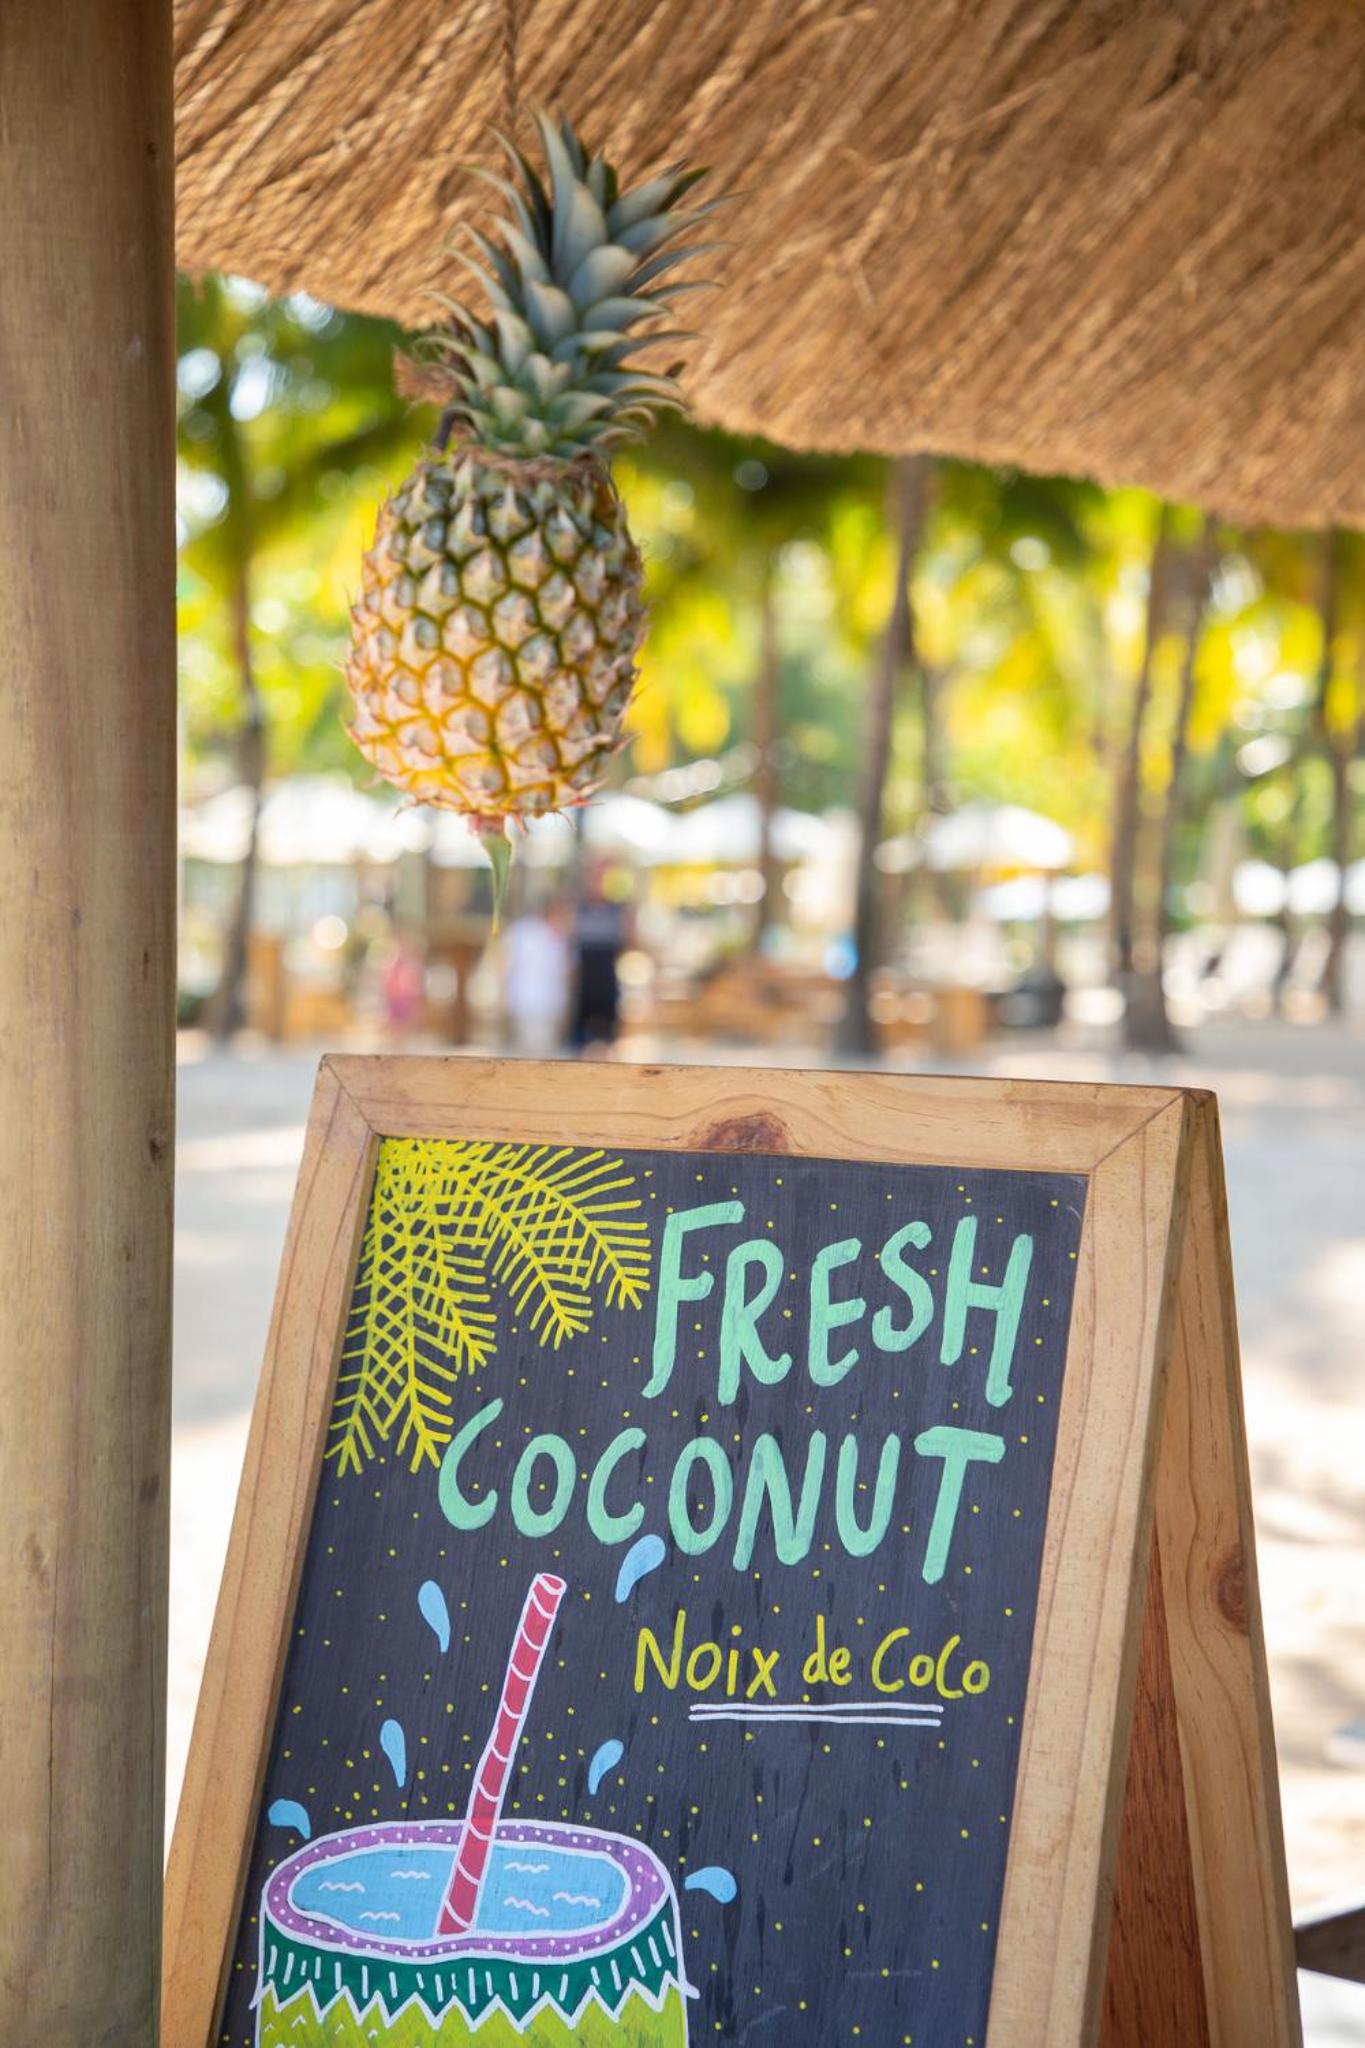 FRESH
COCONUT
Noix de Coco